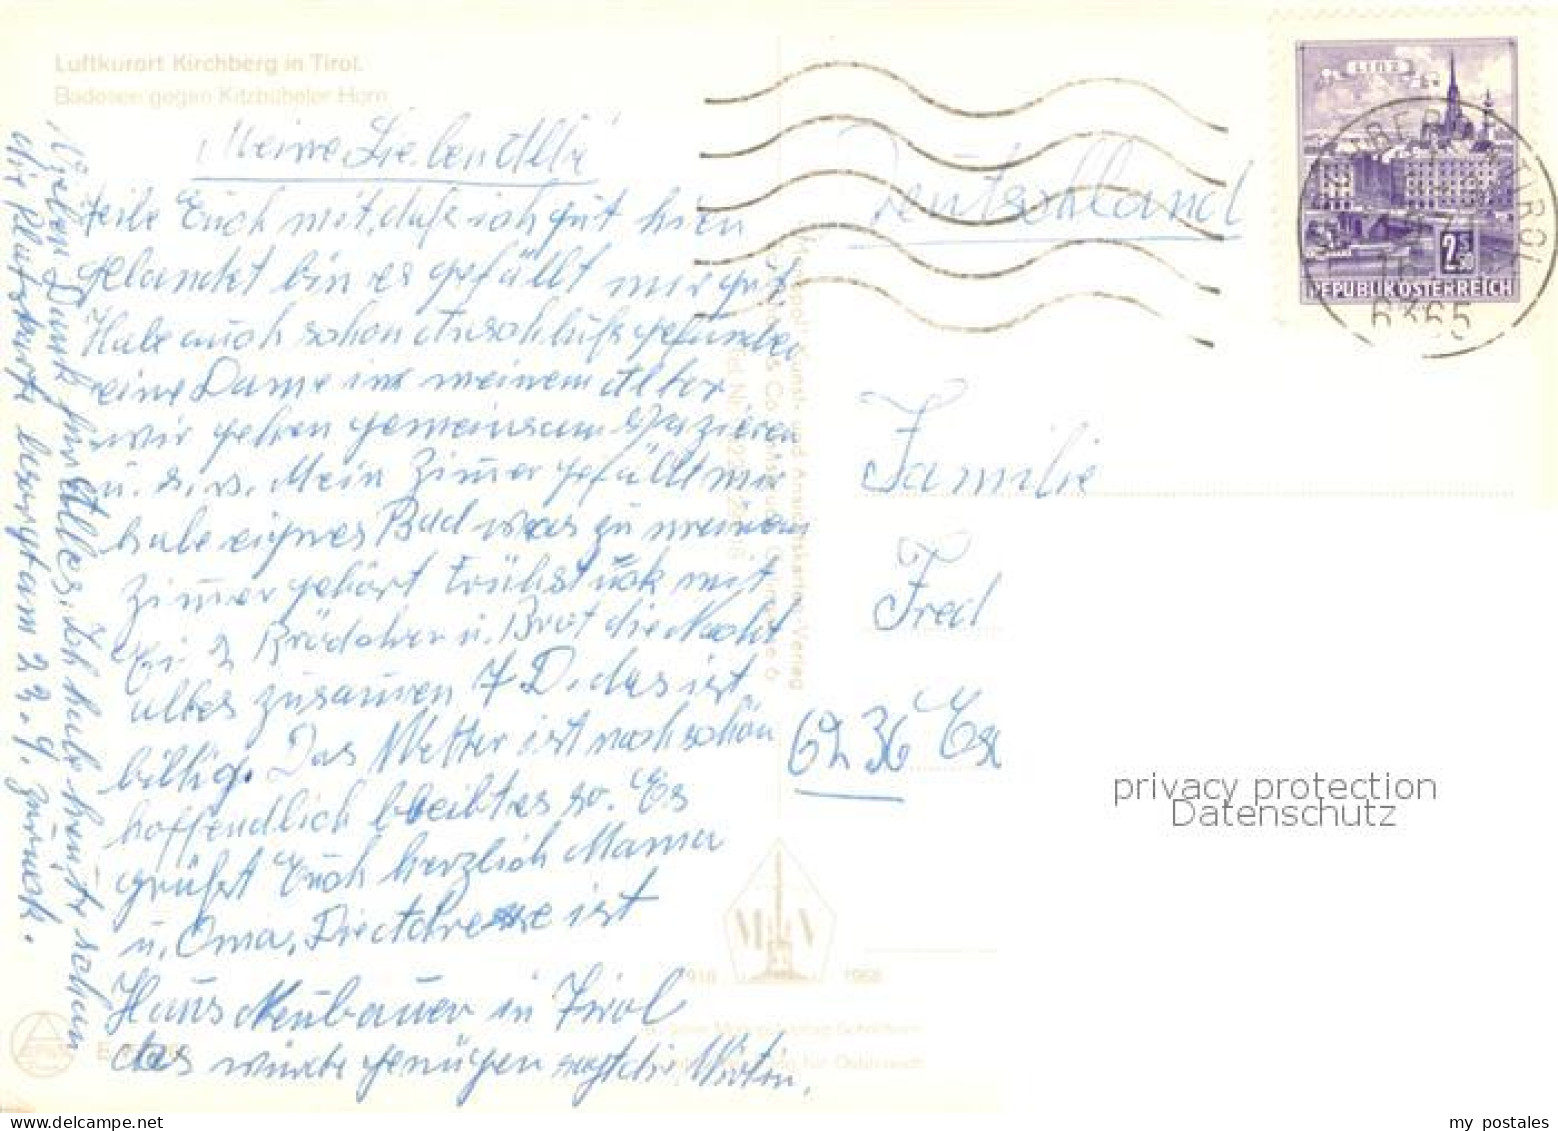 Luftkurort Kirchberg in Tirol.
Badesee gegen Kitzbüheler Horn
Meine Lieben Alle
teile Euch mit, daß ich gut hier
gelandet bin es gefällt mir gut
Habe auch schon Anschluß gefunden
eine Dame in meinem Alter
wir gehen gemeinsam spazieren
u.s.w. Mein Zimmer gefällt mir
habe eignes Bad was zu meinem
Zimmer gehört Frühstück mit
Ei 2 Brödchen u. Brot die Nacht
alles zusammen 7 D. das ist
billig. Das Wetter ist noch schön
hoffendlich bleibt es so. Es
grüßt Euch herzlich Mama
u. Oma, Die Adresse ist
Haus Neubauer in Tirol
das würde genügen sagt die Wirtin.
Vielen Dank für Alles. Ich habe heute schon
die Platzkarte besorgt am 22.9. zurück.
Deutschland
Familie
Fred
6236 Esc
LINZ
2 S 50
REPUBLIK ÖSTERREICH
TIROL
6365
M V
1918 1968
privacy protection
Datenschutz
my postales